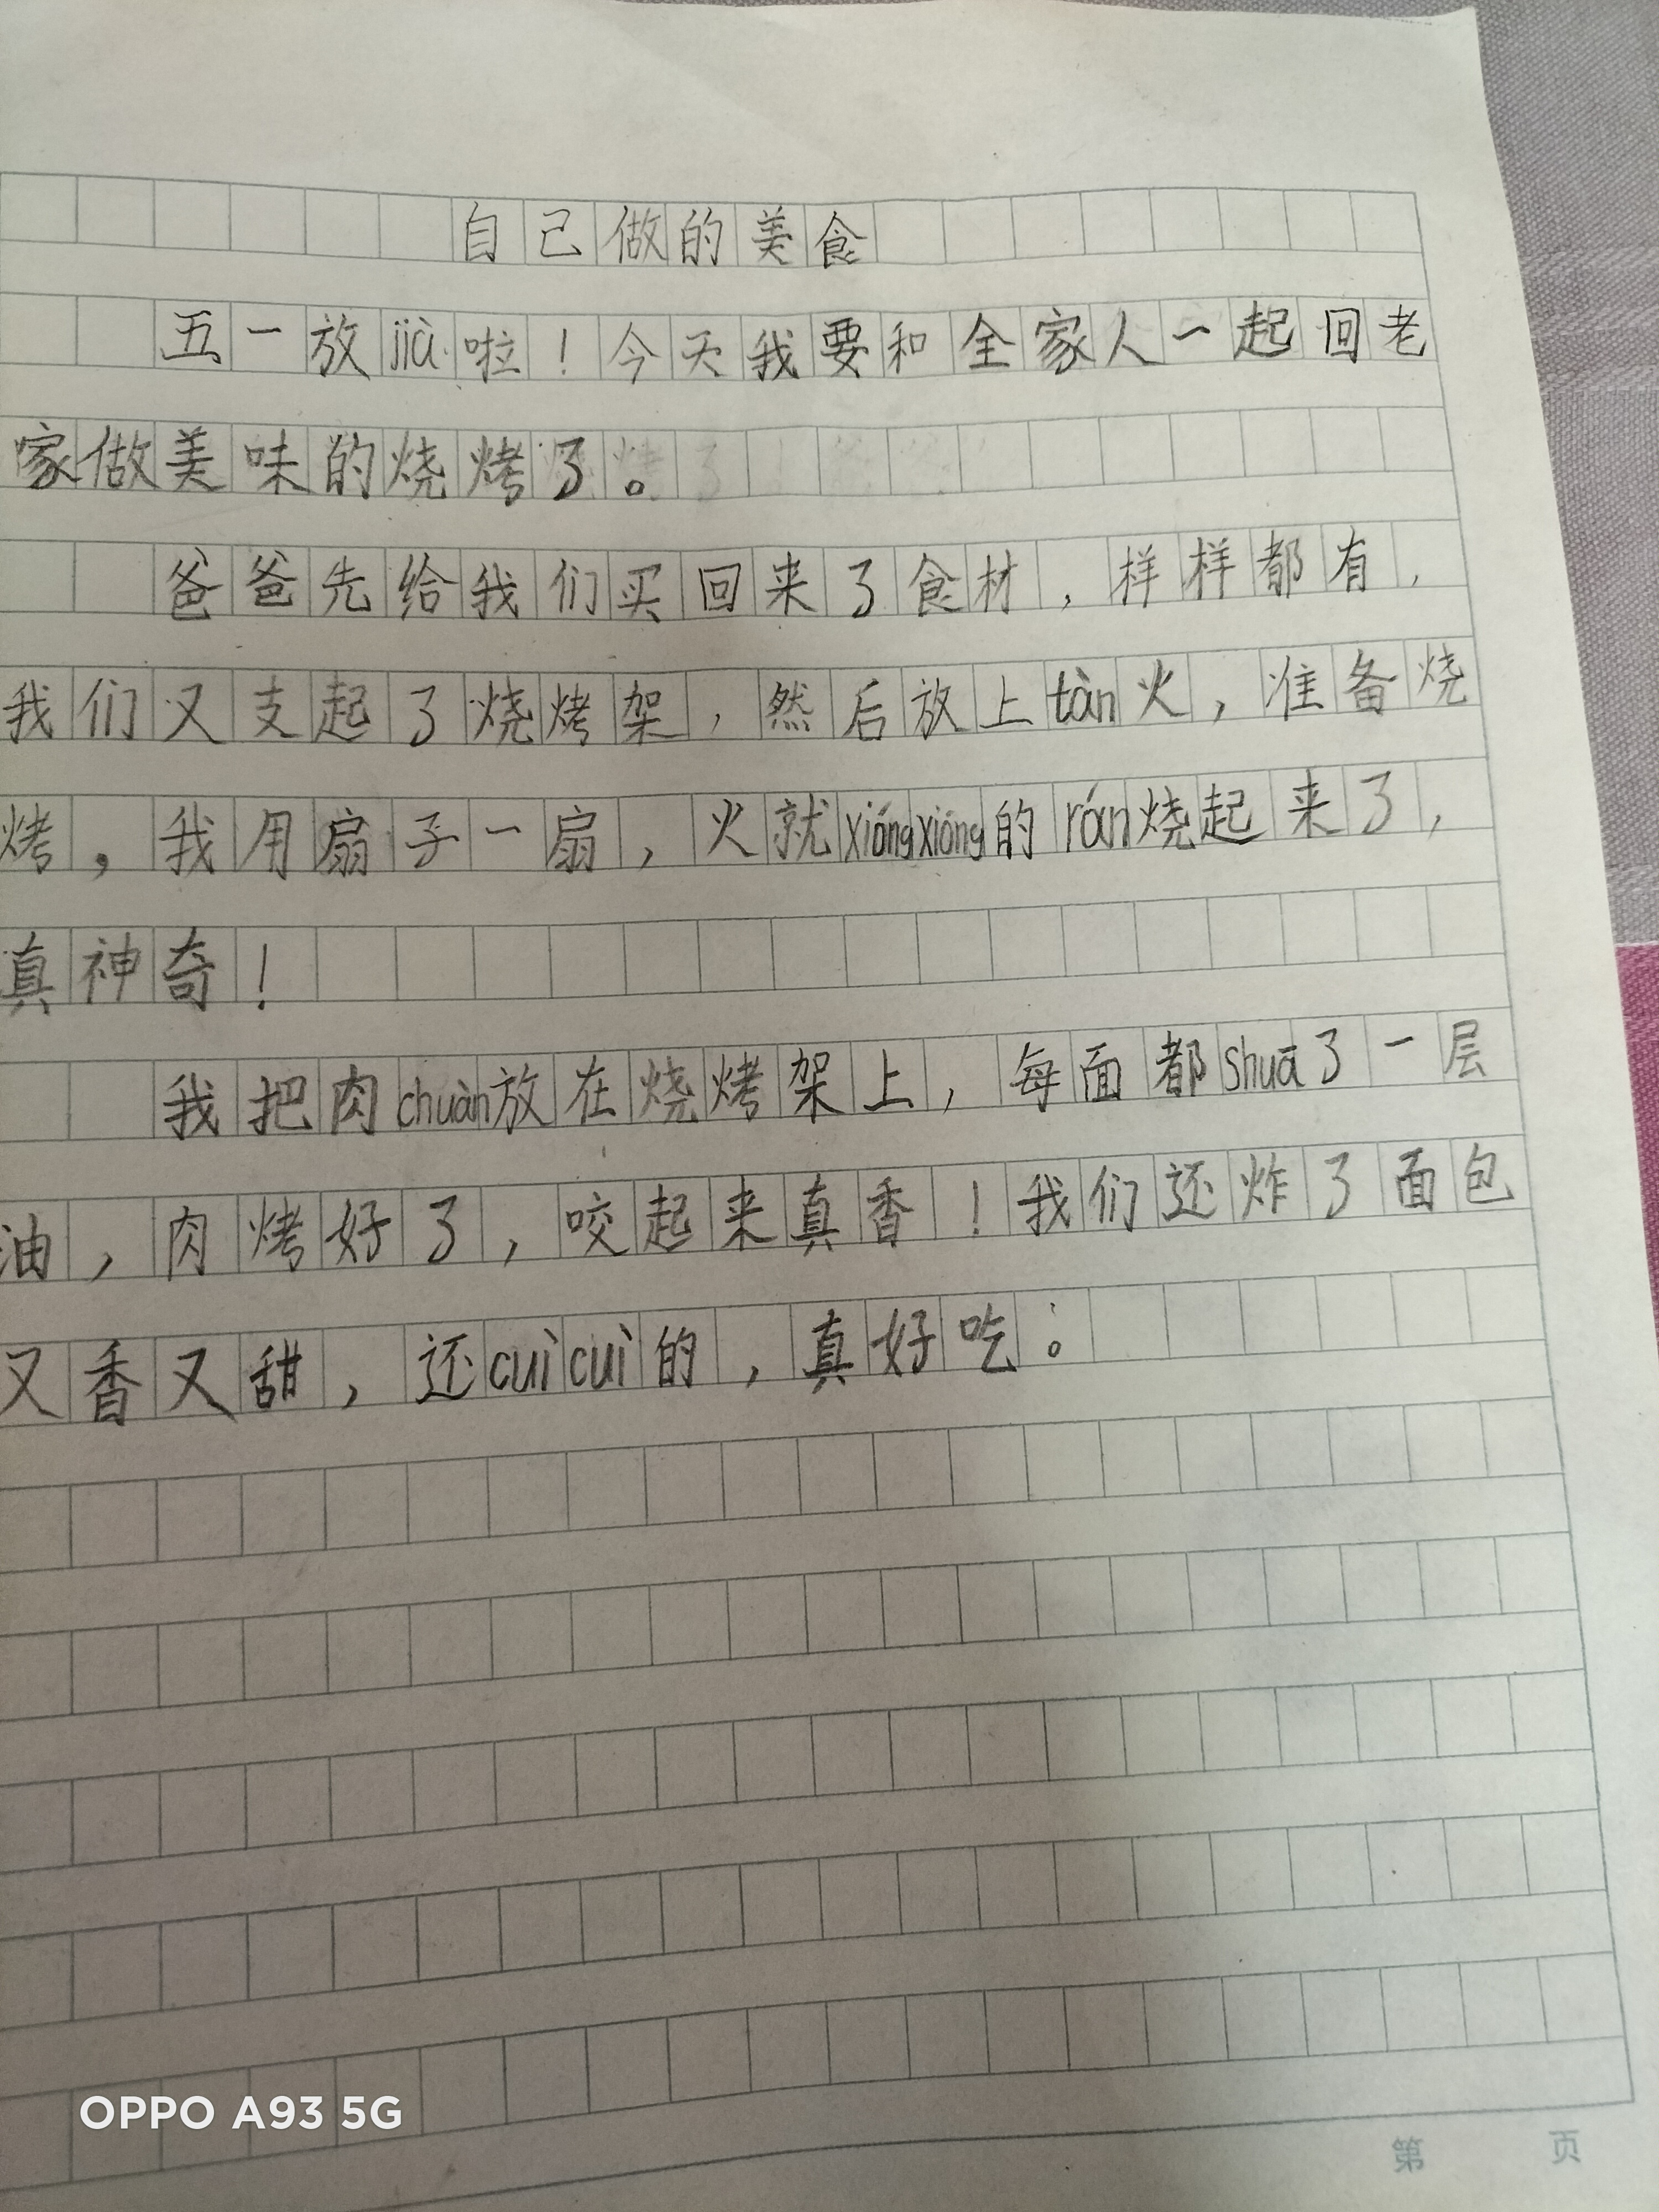 自己做的美食
五一放jià啦！今天我要和全家人一起回老
家做美味的烧烤了。
爸爸先给我们买回来了食材，样样都有，
我们又支起了烧烤架，然后放上tàn火，准备烧
烤，我用扇子一扇，火就xióngxióng的rán烧起来了，
真神奇！
我把肉chuàn放在烧烤架上，每面都shuā了一层
油，肉烤好了，咬起来真香！我们还炸了面包
又香又甜，还cuìcuì的，真好吃。
OPPO A93 5G
第 页